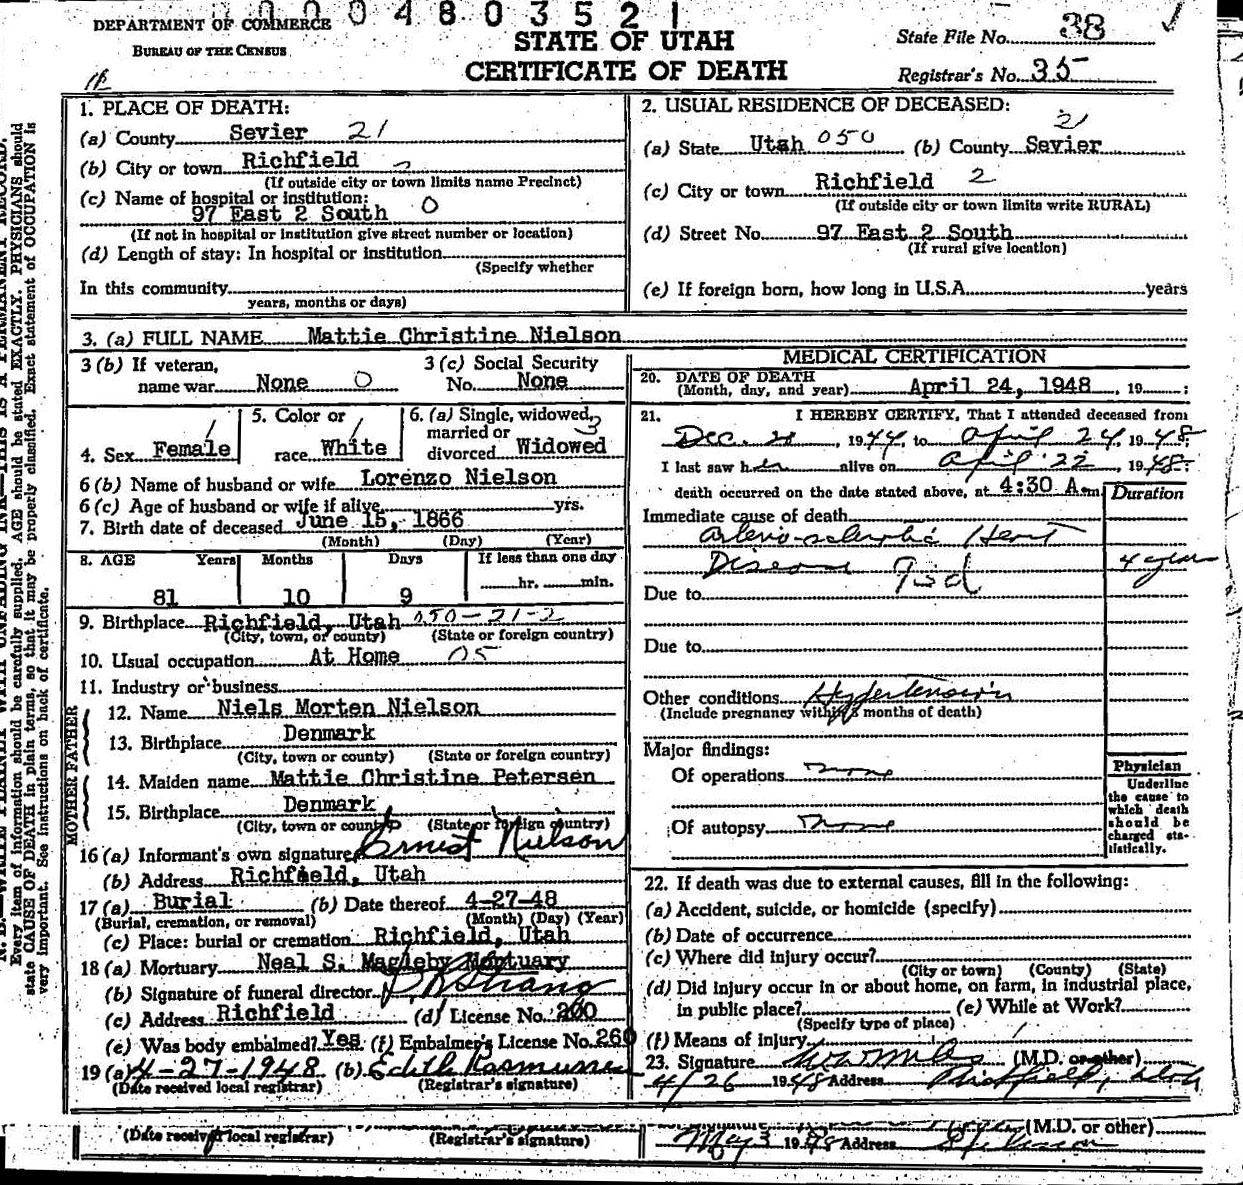 0004803521
DEPARTMENT OF COMMERCE
BUREAU OF THE CENSUS
STATE OF UTAH
CERTIFICATE OF DEATH
State File No. 38
Registrar's No. 35
1. PLACE OF DEATH:
(a) County Sevier 21
(b) City or town Richfield 2
(If outside city or town limits name Precinct)
(c) Name of hospital or institution:
97 East 2 South 0
(If not in hospital or institution give street number or location)
(d) Length of stay: In hospital or institution
(Specify whether
In this community
years, months or days)
2. USUAL RESIDENCE OF DECEASED:
21
(a) State Utah 050 (b) County Sevier
(c) City or town Richfield 2
(If outside city or town limits write RURAL)
(d) Street No. 97 East 2 South
(If rural give location)
(e) If foreign born, how long in U.S.A. years
3. (a) FULL NAME Mattie Christine Nielson
3 (b) If veteran,
name war. None 0
3 (c) Social Security
No. None
4. Sex Female 1
5. Color or
race White 1
6. (a) Single, widowed,
married or
divorced Widowed 3
6 (b) Name of husband or wife Lorenzo Nielson
6 (c) Age of husband or wife if alive yrs.
7. Birth date of deceased June 15, 1866
(Month) (Day) (Year)
8. AGE Years Months Days If less than one day
hr. min.
81 10 9
9. Birthplace Richfield, Utah 050-21-2
(City, town, or county) (State or foreign country)
10. Usual occupation At Home 05
11. Industry or business
FATHER
12. Name Niels Morten Nielson
13. Birthplace Denmark
(City, town or county) (State or foreign country)
MOTHER
14. Maiden name Mattie Christine Petersen
15. Birthplace Denmark
(City, town or county) (State or foreign country)
16 (a) Informant's own signature Ernest Nielson
(b) Address Richfield, Utah
17 (a) Burial (b) Date thereof 4-27-48
(Burial, cremation, or removal) (Month) (Day) (Year)
(c) Place: burial or cremation Richfield, Utah
18 (a) Mortuary Neal S. Magleby Mortuary
(b) Signature of funeral director
(c) Address Richfield (d) License No. 200
(e) Was body embalmed? Yes (f) Embalmer's License No. 260
19 (a) 4-27-1948 (b) Edith Rasmussen
(Date received local registrar) (Registrar's signature)
MEDICAL CERTIFICATION
20. DATE OF DEATH
(Month, day, and year) April 24, 1948, 19 ;
21. I HEREBY CERTIFY, That I attended deceased from
Dec. 1944, to April 24, 1948;
I last saw her alive on April 22, 1948;
death occurred on the date stated above, at 4:30 A.m.
Duration
Immediate cause of death
Arterio-sclerotic Heart
Disease 4 years
Due to
Due to
Other conditions Hypertension
(Include pregnancy within 3 months of death)
Major findings:
Of operations none
Of autopsy none
Physician
Underline
the cause to
which death
should be
charged sta-
tistically.
22. If death was due to external causes, fill in the following:
(a) Accident, suicide, or homicide (specify)
(b) Date of occurrence
(c) Where did injury occur?
(City or town) (County) (State)
(d) Did injury occur in or about home, on farm, in industrial place,
in public place? (e) While at Work?
(Specify type of place)
(f) Means of injury
23. Signature (M.D. or other)
4/26 1948 Address Richfield, Utah
(Date received local registrar) (Registrar's signature)
(M.D. or other)
May 3 1948 Address
N. B.—WRITE PLAINLY WITH UNFADING INK—THIS IS A PERMANENT RECORD.
Every item of information should be carefully supplied. AGE should be stated EXACTLY. PHYSICIANS should
state CAUSE OF DEATH in plain terms, so that it may be properly classified. Exact statement of OCCUPATION is
very important. See instructions on back of certificate.